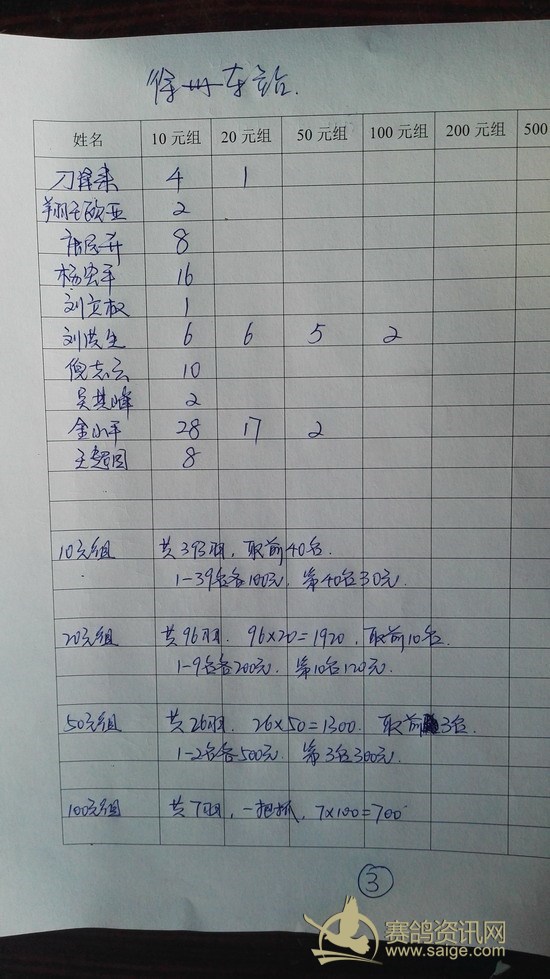 徐州东站.
姓名 10元组 20元组 50元组 100元组 200元组 500
刁锋来 4 1
翔王欧亚 2
8
杨宏军 16
刘立权 1
刘洪生 6 6 5 2
倪志云 10
吴其峰 2
金小平 28 17 2
王超国 8
10元组 共393羽, 取前40名.
1-39名各100元. 第40名30元.
20元组 共96羽. 96×20=1920, 取前10名.
1-9名各200元. 第10名120元.
50元组 共26羽. 26×50=1300. 取前3名.
1-2名各500元. 第3名300元.
100元组 共7羽, 一把抓, 7×100=700
3
赛鸽资讯网
www.saige.com